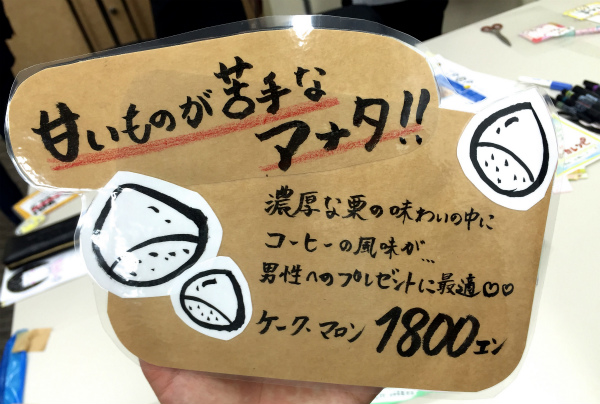 甘いものが苦手な
マナタ!!
濃厚な栗の味わいの中に
コーヒーの風味が…
男性へのプレゼントに最適♡♡
ケーク・マロン 1800エン